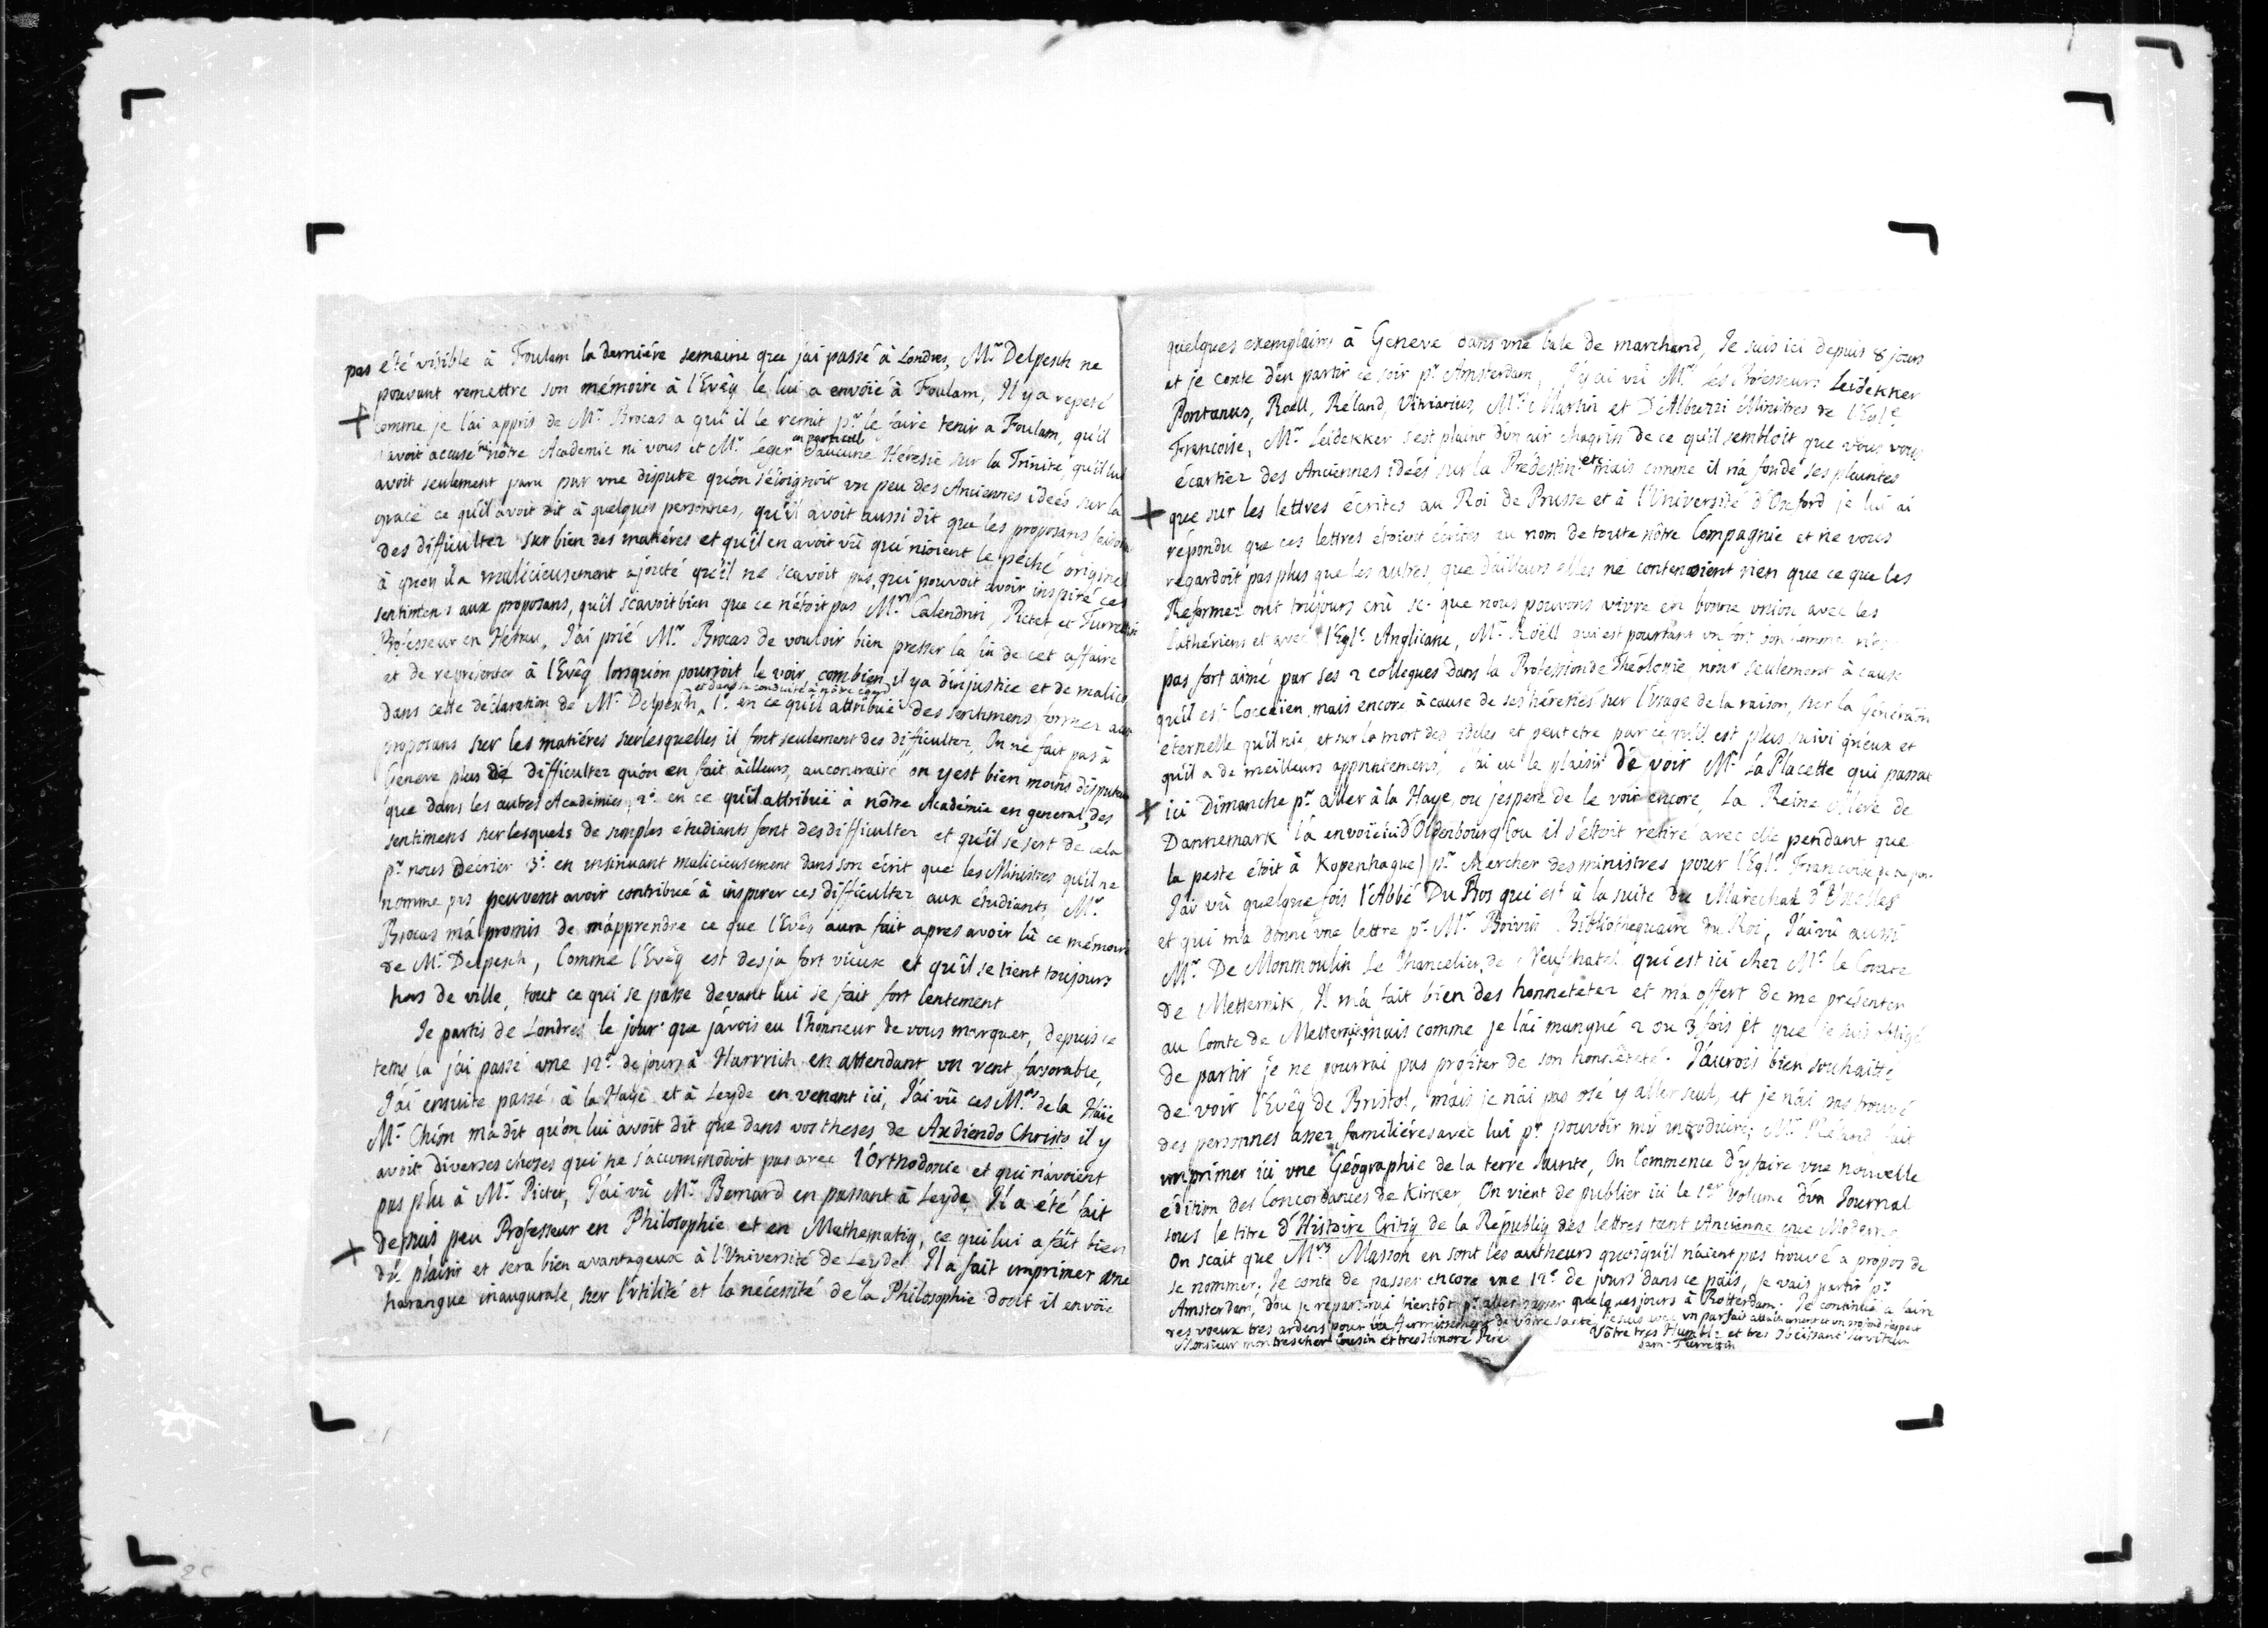 pas été visible à Foulam la derniére semaine que j'ai passé à Londres, Mr Delpesch ne
pouvant remettre son mémoire à l'Evêq le lui a envoïé à Foulam, Il y a repeté
comme je l'ai appris de Mr Brocas a qui il le remit pr le faire tenir a Foulam, qu'il
n'avoit accusé ni nôtre Academie ni vous et Mr Leger en particul d'aucune Héresie sur la Trinité, qu'il lui
avoit seulement paru par vne dispute qu'on s'éloignoit vn peu des Anciennes idées sur la
grace ce qu'il avoit dit à quelques personnes, qu'il avoit aussi dit que les proposans faisoient
des difficultez sur bien des matiéres et qu'il en avoit vû qui nioient le péché originel
à quoi il a malicieusement ajouté qu'il ne scavoit pas qui pouvoit avoir inspiré ces
sentimens aux proposans, qu'il scavoit bien que ce n'étoit pas Mrs Calendrin, Pictet et Turrettin
Professeur en Hebreu, J'ai prié Mr Brocas de vouloir bien presser la fin de cet affaire
et de représenter à l'Evêq lorsqu'on pourroit le voir, combien il y a d'injustice et de malice
dans cette déclaration de Mr Delpesch et dans sa conduite à nôtre égard, 1° en ce qu'il attribuë des sentimens formez aux
proposans sur les matiéres surlesquelles il font seulement des difficultez, On ne fait pas à
Geneve plus de difficultez qu'on en fait ailleurs, aucontraire on y est bien moins disputeur
que dans les autres Académies, 2° en ce qu'il attribuë à nôtre Académie en general, des
sentimens surlesquels de simples étudiants font desdifficultez et qu'il se sert de cela
pr nous décrier 3° en insinuant malicieusement dans son écrit que les Ministres qu'il ne
nomme pas peuvent avoir contribué à inspirer ces difficultez aux étudiants, Mr
Brocas m'a promis de m'apprendre ce que l'Evêq aura fait apres avoir lû ce mémoire
de Mr Delpesch, Comme l'Evêq est desja fort vieux et qu'il se tient toujours
hors de ville, tout ce qui se passe devant lui se fait fort lentement
Je partis de Londres le jour que j'avois eu l'honneur de vous marquer, depuis ce
tems la j'ai passé une 12e de jours à Harvvich en attendant vn vent favorable,
J'ai ensuite passé à la Haÿe et à Leyde en venant ici, J'ai vû ces Mrs de la Haïe
Mr Chion m'a dit qu'on lui avoit dit que dans vos theses de Audiendo Christo il y
avoit diverses choses qui ne s'accommodoit pas avec l'Orthodoxie et qui n'avoient
pas plu à Mr Pictet, J'ai vû Mr Bernard en passant à Leyde Il a été fait
depuis peu Professeur en Philosophie et en Mathematiq, ce qui lui a fait bien
du plaisir et sera bien avantageux à l'Université de Leyde Il a fait imprimer une
harangue inaugurale, sur l'vtilité et la nécessité de la Philosophie dont il envoïe
quelques exemplaires à Geneve dans vne bale de marchand, Je suis ici depuis 8 jours
et je conte d'en partir ce soir pr Amsterdam, J'y ai vû Mrs les Professeurs Leidekker
Pontanus, Roell, Réland, Vitriarius, Mrs Martin et D'Albuzzi Ministres de l'Egle
Francoise, Mr Leidekker s'est plaint d'un air chagrin de ce qu'il sembloit que vous vous
écartiez des Anciennes idées sur la Prédestin: etc mais comme il n'a fondé ses plaintes
que sur les lettres écrites au Roi de Prusse et à l'Université d'Oxford je lui ai
répondu que ces lettres étoient écrites au nom de toute nôtre Compagnie et ne vous
regardoit pas plus que les autres, que d'ailleurs elles ne contenoient rien que ce que les
Reformez ont toujours crû sc. que nous pouvons vivre en bonne vnion avec les
luthériens et avec l'Egle Anglicane, Mr Roëll qui est pourtant vn fort bon homme n'est
pas fort aimé par ses 2 collegues dans la Profession de Théologie non seulement à cause
qu'il est Cocceïen, mais encore à cause de ses hérésies sur l'usage de la raison, sur la Génération
éternelle qu'il nie, et sur la mort des fideles et peut etre parce qu'il est plus suivi qu'eux et
qu'il a de meilleurs appointemens, J'ai eu le plaisir de voir Mr La Placette qui passat
ici Dimanche pr aller à la Haye, ou j'espere de le voir encore, La Reine Mere de
Dannemark l'a envoïé d'Oldenbourg (ou il s'étoit retiré avec elle pendant que
la peste étoit à Kopenhague) pr chercher des ministres pour l'Egle Francoise
J'ai vû quelque fois l'Abbé Du Bos qui est à la suite du Maréchal d'Uxelles
et qui m'a donné vne lettre pr Mr Boivin Bibliothequaire du Roi, J'ai vû aussi
Mr De Monmoulin le Chancelier de Neufchatel qui est ici chez Mr le Comte
de Metternik, Il m'a fait bien des honnetetez et m'a offert de me présenter
au Comte de Metternik, mais comme je l'ai manqué 2 ou 3 fois et que je suis obligé
de partir je ne pourrai pas profiter de son honnêteté. J'aurois bien souhaitté
de voir l'Evêq de Bristol, mais je n'ai pas osé y aller seul, et je n'ai pas trouvé
des personnes assez familiéres avec lui pr pouvoir m'y introduire, Mr Réland fait
imprimer ici vne Géographie de la terre sainte, On commence d'y faire vne nouvelle
édition des Concordances de Kirker, On vient de publier ici le 1er volume d'un Journal
sous le titre d'Histoire Critiq de la Républiq des lettres tant Ancienne que Moderne
On scait que Mrs Masson en sont les autheurs quoiqu'il n'aient pas trouvé a propos de
se nommer, Je conte de passer encore vne 12e de jours dans ce païs, Je vais partir pr
Amsterdam, d'ou je repartirai bientôt pr aller passer quelques jours à Rotterdam, Je continuë a faire
des voeux tres ardens pour l'affermissement de vôtre santé, je suis avec vn parfait attachement et vn profond respect
Monsieur mon tres cher Cousin et tres Honoré Pere
Vôtre tres Humble et tres Obéissant serviteur
Sam: Turrettin